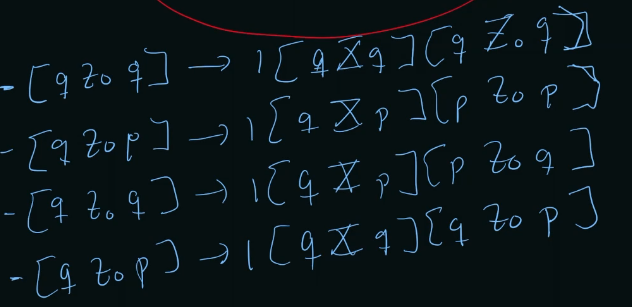 - [q z₀ q] → 1 [q X q] [q Z₀ q]
- [q z₀ p] → 1 [q X p] [p z₀ p]
- [q z₀ q] → 1 [q X p] [p z₀ q]
- [q z₀ p] → 1 [q X q] [q z₀ p]